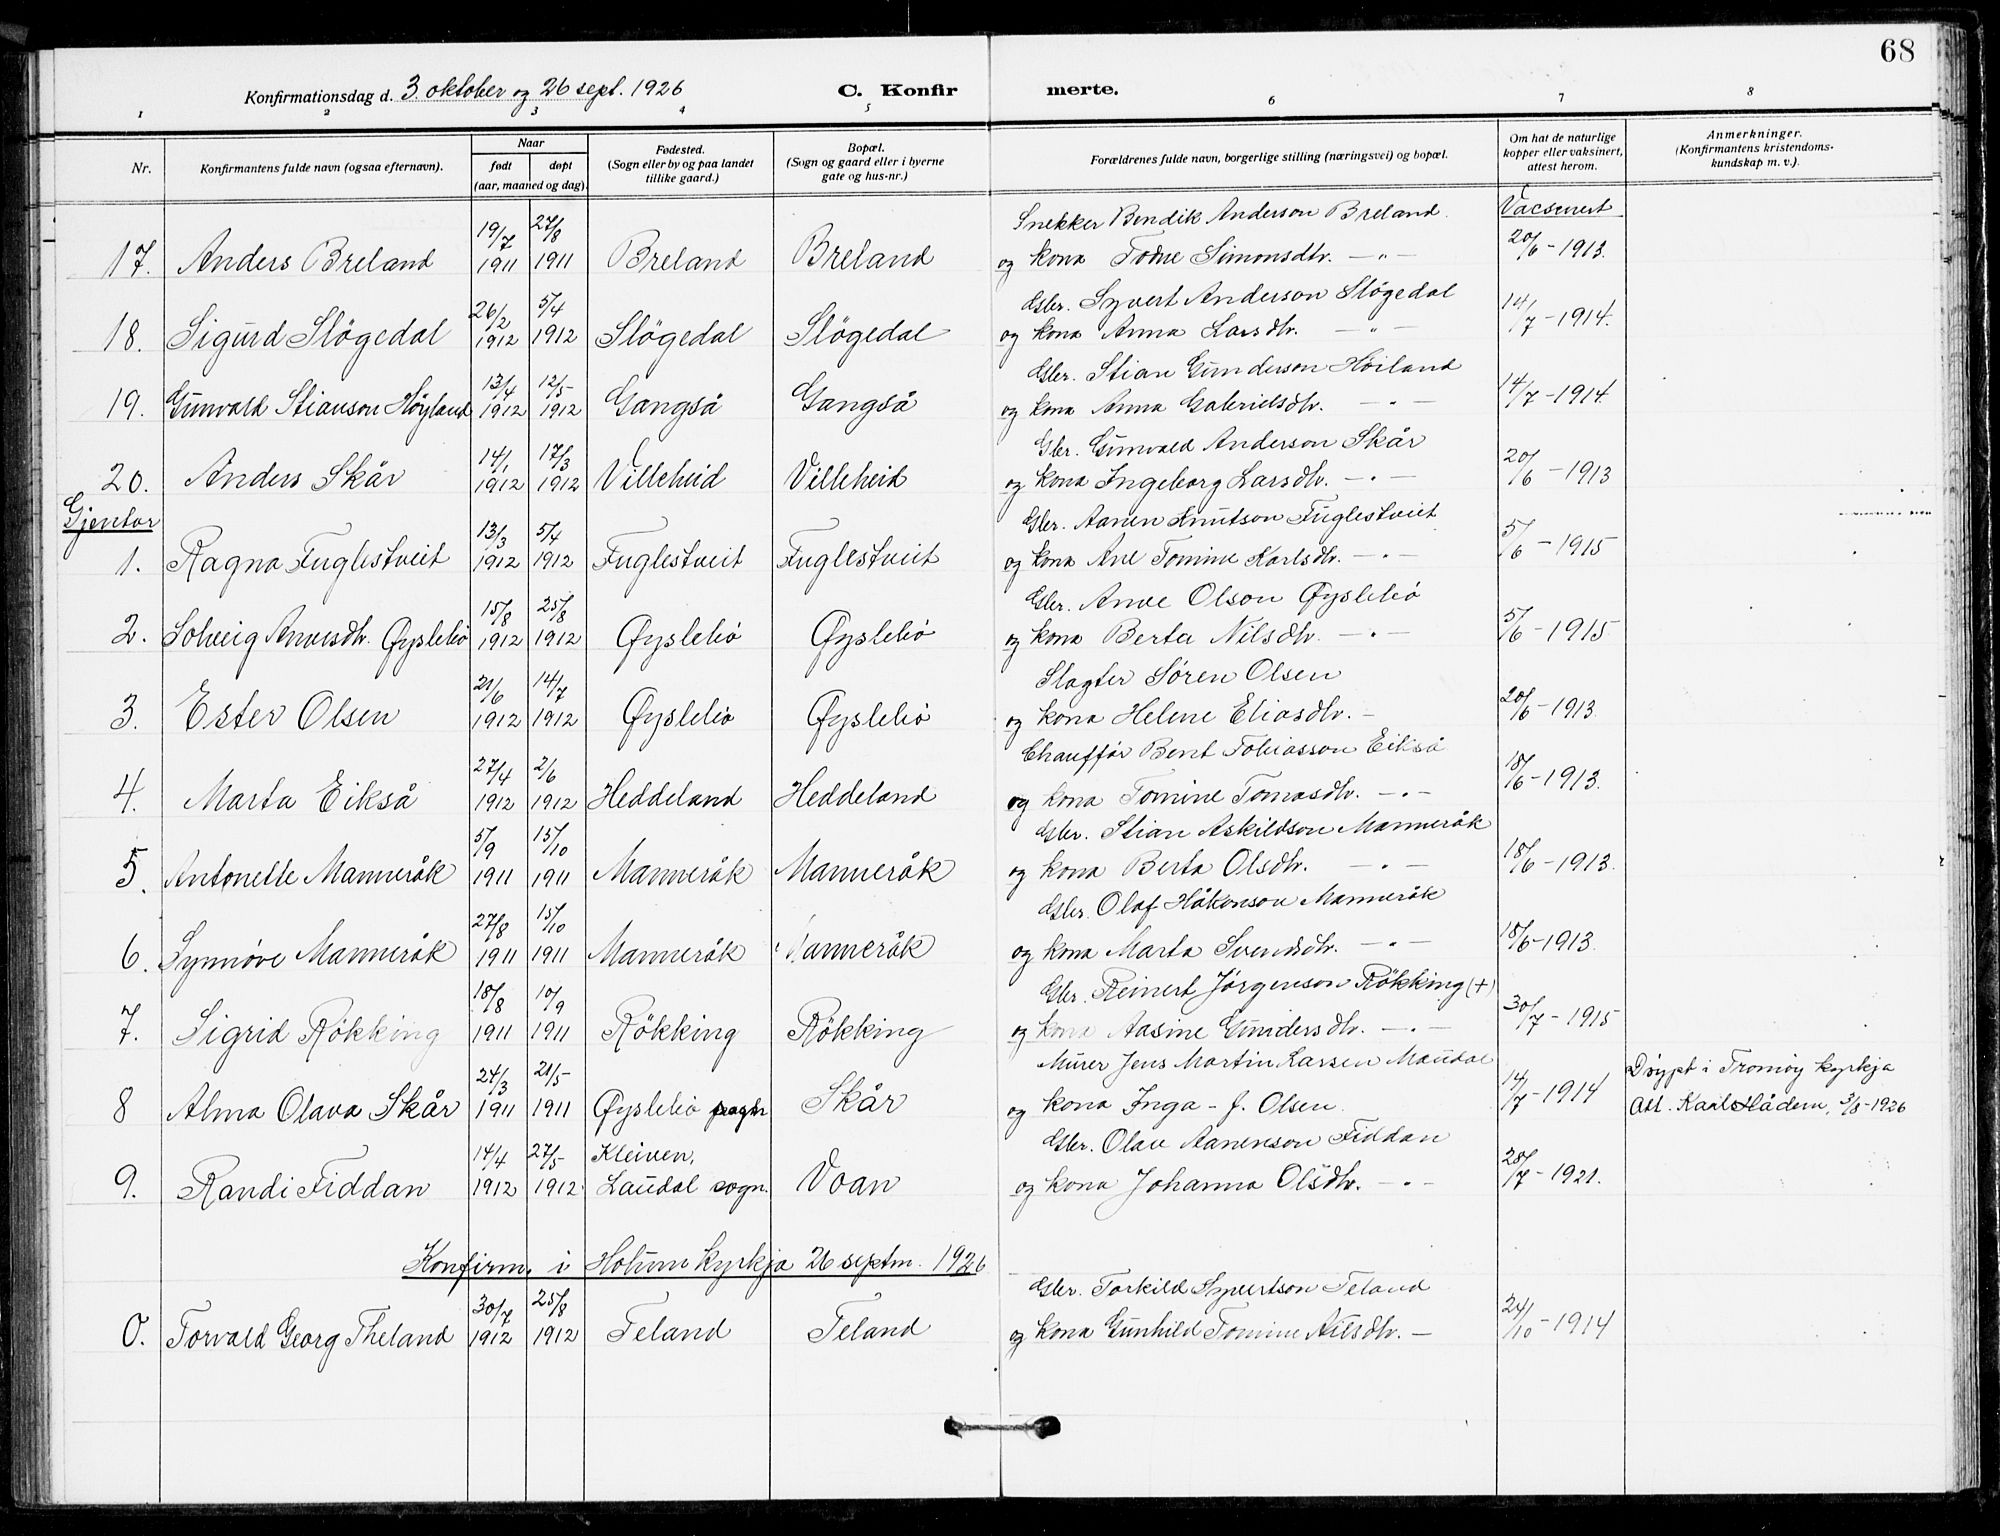 68
Konfirmationsdag d. 3. oktober og 26 sept. 1926 C. Konfir merte.
1 2 3 4 5 6 7 8
Nr. Konfirmantens fulde navn (ogsaa efternavn). Naar født døpt (aar, maaned og dag). Fødested. (Sogn eller by og paa landet tillike gaard.) Bopæl. (Sogn og gaard eller i byerne gate og hus-nr.) Forældrenes fulde navn, borgerlige stilling (næringsvei) og bopæl. Om hat de naturlige kopper eller vaksinert, attest herom. Anmerkninger. (Konfirmantens kristendomskundskap m. v.).
19/7 27/8 Snekker Bendik Anderson Breland
17. Anders Breland 1911 1911 Breland Breland og kona Todne Simonsdtr. — " — 20/6 - 1913.
26/2 5/4 Gbr. Syvert Anderson Slögedal
18. Sigurd Slögedal 1912 1912 Slögedal Slögedal og kona Anna Larsdtr. — " — 14/7 - 1914.
13/4 12/5 Gbr. Stian Gunderson Höiland
19. Gunvald Stianson Höyland 1912 1912 Gangså Gangså og kona Anna Gabrielsdtr. — " — 14/7 - 1914.
14/1 17/3 Gbr. Gunvald Anderson Skår
20. Anders Skår 1912 1912 Villeheid Villeheid og kona Ingeborg Larsdtr. — " — 20/6 - 1913
Gjentor
13/3 5/4 Gbr. Aanen Knutson Fuglestveit
1. Ragna Fuglestveit 1912 1912 Fuglestveit Fuglestveit og kona Ane Tomine Karlsdtr. — " — 5/6 - 1915
15/8 25/8 Gbr. Anve Olson Øyslebö
2. Solveig Anvesdtr. Øyslebö 1912 1912 Øyslebö Øyslebö og kona Berta Nilsdtr. — " — 5/6 - 1915
21/6 14/7 Slagter Sören Olsen
3. Ester Olsen 1912 1912 Øyslebö Øyslebö og kona Helene Eliasdtr. — 20/6 - 1913.
27/4 2/6 Chaufför Bent Tobiasson Eikså
4. Marta Eikså 1912 1912 Heddeland Heddeland og kona Tomine Tomasdtr. — " — 18/6 - 1913.
5/9 15/10 Gbr. Stian Askildson Manneråk
5. Antonette Manneråk 1911 1911 Manneråk Manneråk og kona Berta Olsdtr. — " — 18/6 - 1913.
27/8 15/10 Gbr. Olaf Håkonson Manneråk
6. Synnöve Manneråk 1911 1911 Manneråk Manneråk og kona Marta Svendsdtr. — " — 18/6 - 1913.
18/8 10/9 Gbr. Reinert Jörgenson Rökking (+)
7. Sigrid Rökking 1911 1911 Rökking Rökking og kona Aasine Gundersdtr. — " — 30/7 - 1915
24/3 21/5 Murer Jens Martin Larsen Maudal Döypt i Tromöy kyrkja
8 Alma Olava Skår 1911 1911 Øyslebö sogn Skår og kona Inga - f. Olsen 14/7 - 1914 Att. 3/8 - 1926
14/4 27/5 Kleiven, Gbr. Olav Aanenson Fiddan
9. Randi Fiddan 1912 1912. Laudal sogn. Voan og kona Johanna Olsdtr. — " — 28/7 - 1921.
Konfirm. i Holum kyrkja 26 septm. 1926
30/7 25/8 Gbr. Torkild Syvertson Teland
0. Torvald Georg Theland 1912 1912 Teland Teland og kona Gunhild Tomine Nilsdtr. — 24/10 - 1914